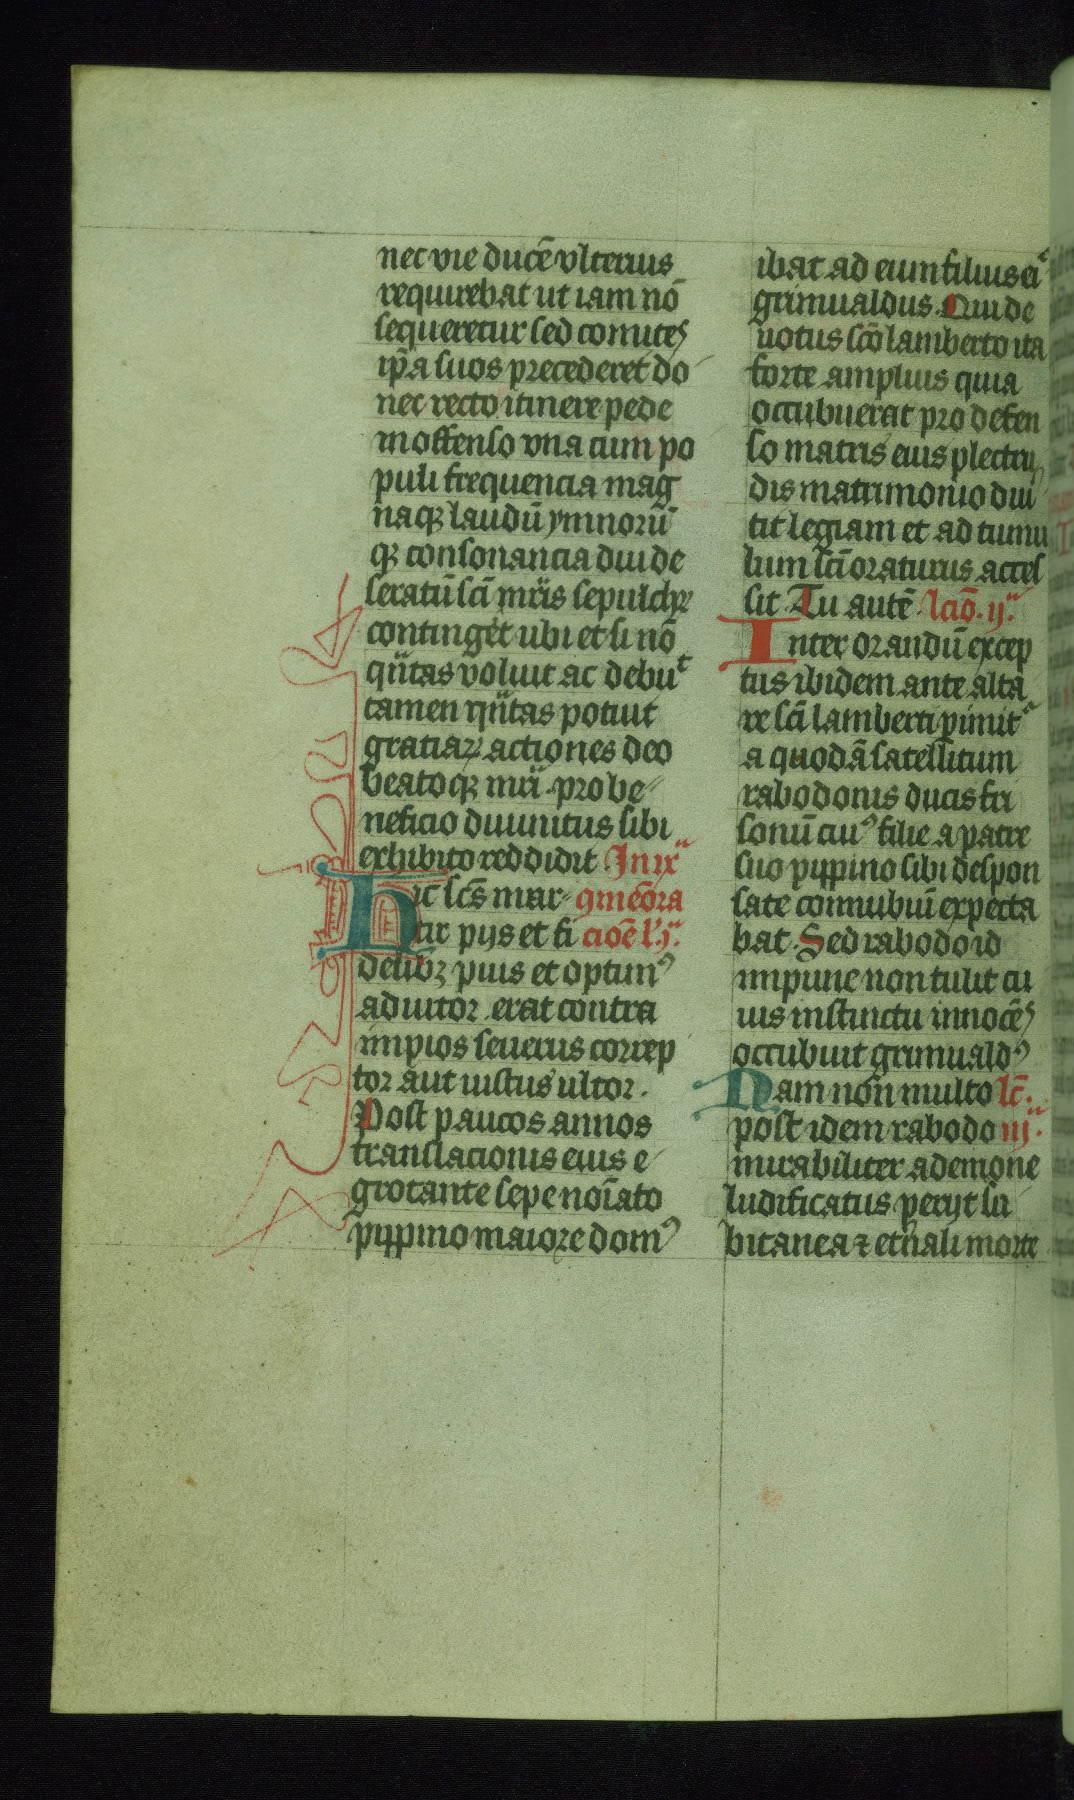 nec vie ducē vlterius
requirebat ut iam nō
sequeretur sed comites
ip̄a suos precederet do
nec recto itinere pede
inoffenso vna cum po
puli frequencia mag
naqꝫ laudū ymnorū
qꝫ consonancia diu de
seratū sc̄i mr̄is sepulchꝝ
contingēt ubi et si nō
qn̄tas voluit ac debuᵗ
tamen qn̄tas potuit
gratiaꝝ actiones deo
beatoqꝫ mr̄i pro be
neficio diuinitus sibi
exhibito reddidit In ix͛
Hic sc̄s mar ꝯmēora
tir pijs et fi cioē l' j͛.
delibꝫ pius et optimꝰ
adiutor erat contra
impios seuerus correp
tor aut iustus ultor.
Post paucos annos
translacionis eius e
grotante sepe noīato
pippino maiore domꝰ
ibat ad eum filius eiꝰ
grimualdus. Qui de
uotus sc̄o lamberto ita
forte amplius quia
occubuerat pro defen
so matris eius plectru
dis matrimonio diu
tit legiam et ad tumu
lum sc̄i oraturus acces
sit. Tu autē lcīo. ij͛.
Inter orandū excep
tus ibidem ante alta
re sc̄i lamberti pimitᵘ
a quodā satellitum
rabodonis ducis fri
sonū cuiꝰ filie a patre
suo pippino sibi despon
sate connubiū expecta
bat. Sed rabodo id
impune non tulit cu
ius instinctu innocēs
occubuit grimualdꝰ
Nam non multo lc̄.
post idem rabodo iij͛.
mirabiliter a demone
ludificatus perijt su
bitanea ⁊ et̄nali morte